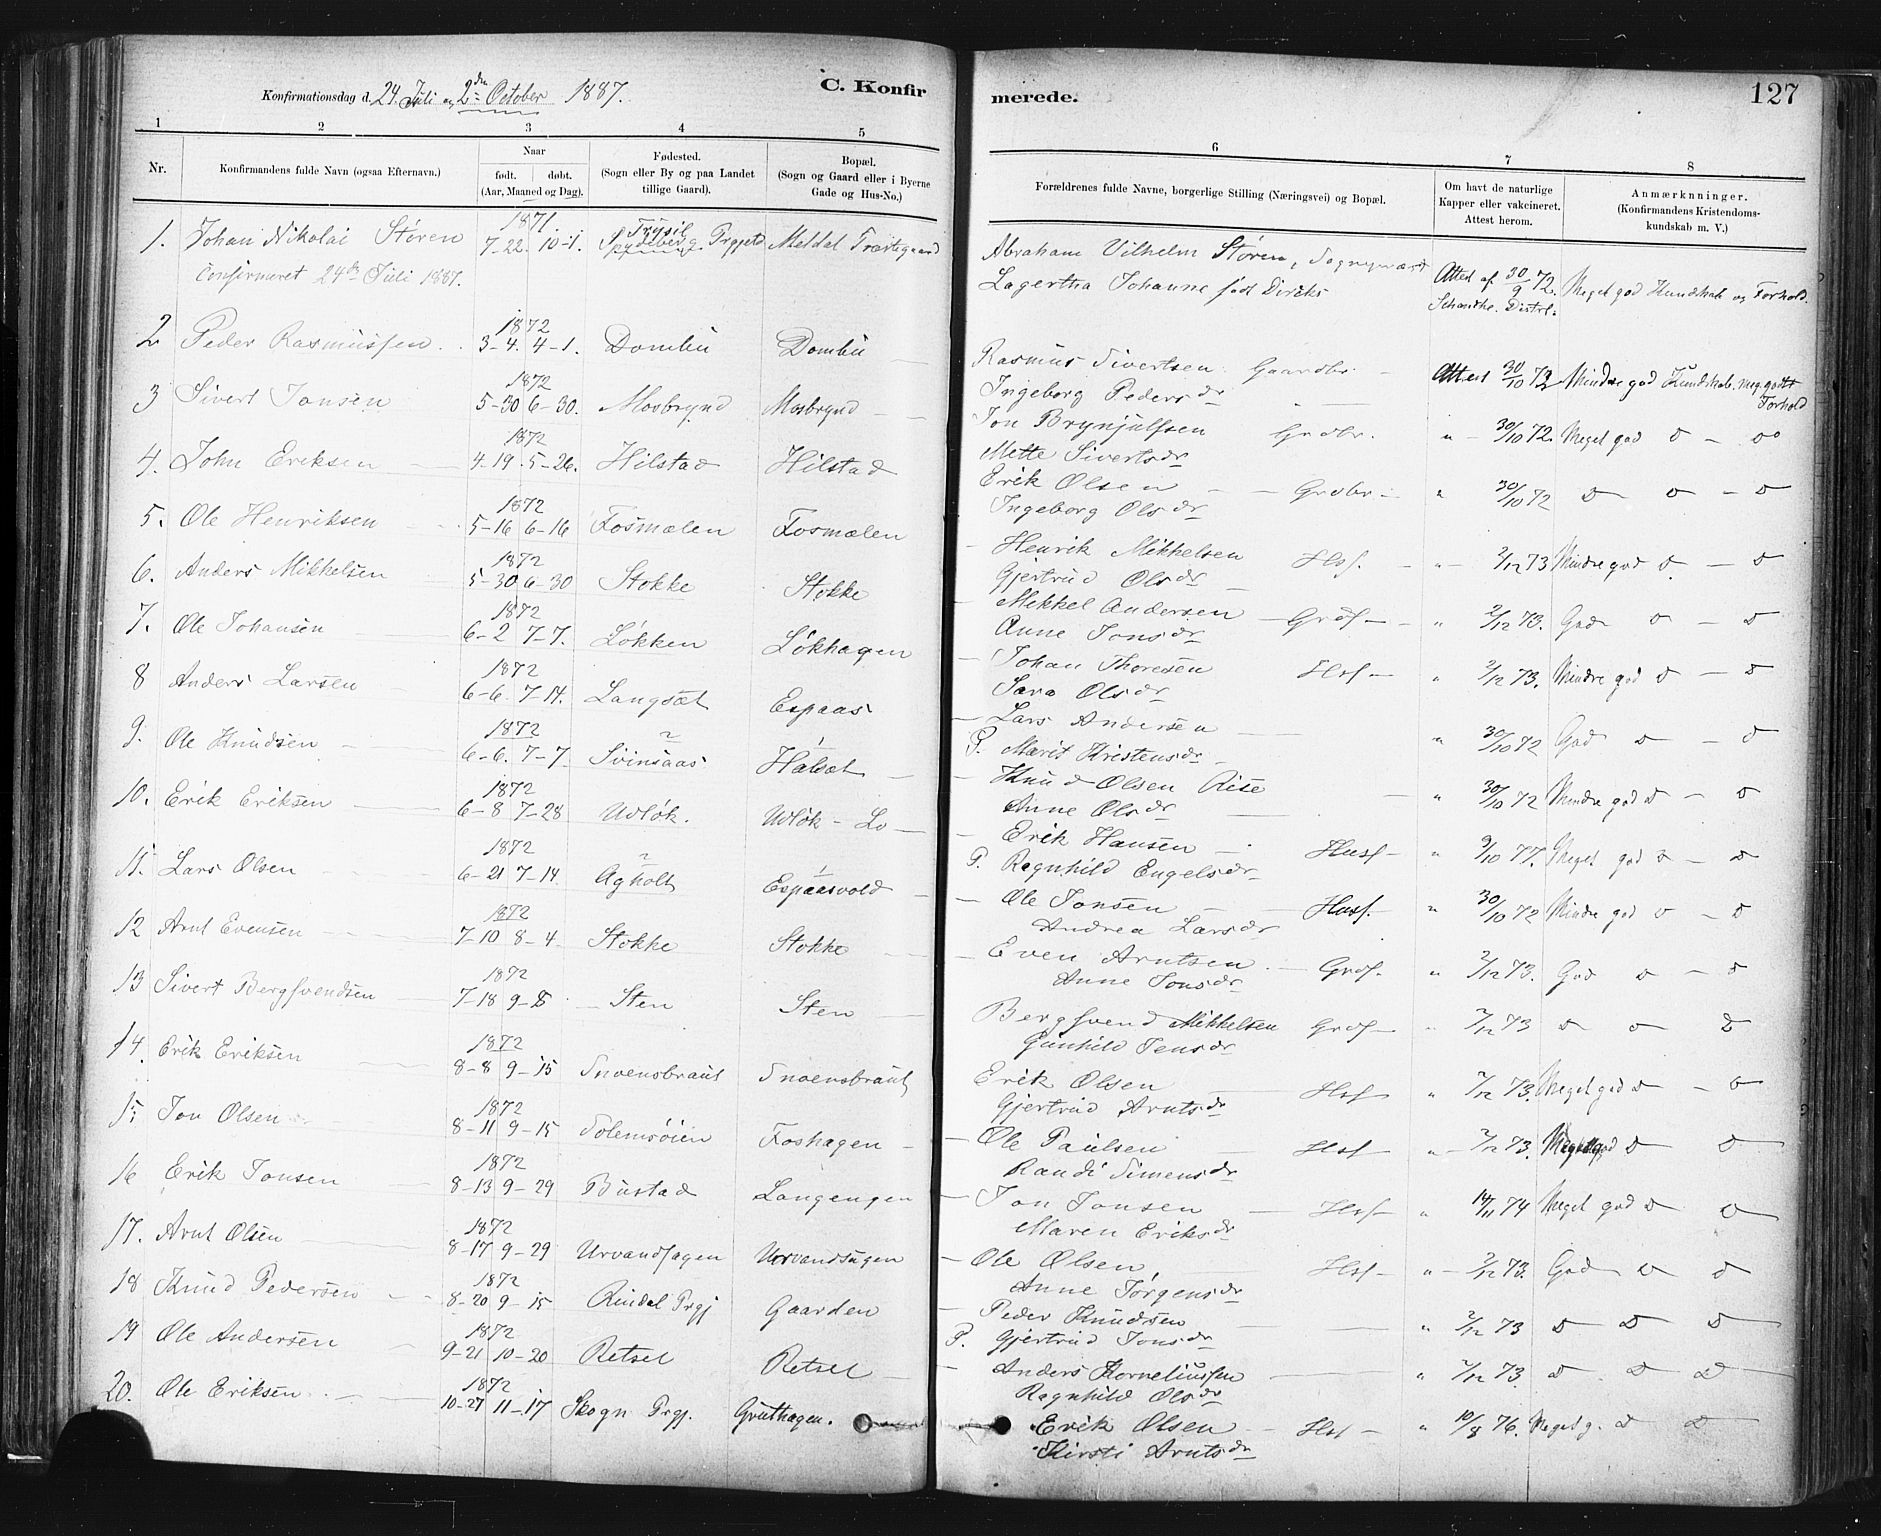 Konfirmationsdag d. 24. Juli og 2den October 1887.
C. Konfirmerede.
127
1 2 3 4 5 6 7 8
Nr.
Konfirmandens fulde Navn (ogsaa Efternavn).
Naar
født. døbt.
(Aar, Maaned og Dag).
Fødested.
(Sogn eller By og paa Landet
tillige Gaard).
Bopæl.
(Sogn og Gaard eller i Byerne
Gade og Hus-No.)
Forældrenes fulde Navne, borgerlige Stilling (Næringsvei) og Bopæl.
Om havt de naturlige
Kapper eller vakcineret.
Attest herom.
Anmærknninger.
(Konfirmandens Kristendoms-
kundskab m. V.)
1. Johan Nikolai Støren 1871 7-22. 10-1. Trysil Prgjeld Meldal Abraham Vilhelm Støren, Sognepræst Attest af 30/9 72. Meget god Kundskab og Forhold.
Confirmeret 24de Juli 1887. Lagertha Johanne født Dircks Distrl.
2 Peder Rasmussen. 1872 3-4. 4-1. Dombu Dombu Rasmus Sivertsen Gaardbr. Attest 30/10 72 Mindre god Kundskab. meg. godt Forhold
Ingeborg Pedersdr
3 Sivert Jonsen 1872 5-30 6-30. Mosbrynd Mosbrynd Jon Brynjulfsen Grdbr. " 30/10 72. Meget god D - do
Mette Sivertsdr
4. John Eriksen 1872 4-19. 5-26. Hilstad Hilstad Erik Olsen Grdbr. " 30/10 72 D D - D
Ingeborg Olsdr
5. Ole Henriksen 1872 5-16 6-16 Fosmælen Fosmælen Henrik Mikkelsen Hsf. " 2/12 73 Mindre god D - D
Gjertrud Olsdr
6. Anders Mikkelsen 1872 5-30 6-30 Stokke Stokke Mikkel Andersen Grdf " 2/12 73. God D - D
Anne Jonsdr
7. Ole Johansen 1872 6-2 7-7. Løkken Løkhagen Johan Thoresen Hsf " 2/12 73. Mindre god D - D
Sara Olsdr
8 Anders Larsen 1872 6-6. 7-14. Langsæt Espaas Lars Andersen " 30/10 72 God D - D
P. Marit Kristensdr
9. Ole Knudsen 1872 6-6. 7-7. Svinsaas Halsæt Knud Olsen Rise " 30/10 72 Mindre god D - D
Anne Olsdr
10. Erik Eriksen 1872 6-8 7-28 Udløk. Udløk - Lo Erik Hansen Husf " 9/10 77. Meget god D - D
P. Ragnhild Engelsdr
11. Lars Olsen 1872 6-21 7-14. Agholt Espaasvold Ole Jonsen Husf. " 30/10 72 Mindre god D - D
Andrea Larsdr
12 Arnt Evensen 1872 7-10 8-4. Stokke Stokke Even Arntsen Grdf. " 2/12 73. God D - D
Anne Jonsdr
13 Sivert Bergsvendsen 1872 7-18 9-8 Sten Sten Bergsvend Mikkelsen Grdf " 2/12 73 D D D
Gunhild Jensdr
14. Erik Eriksen 1872 8-8 9-15 Snoensbraut Snoensbraut Erik Olsen Hsf " 2/12 73. Meget god D - D
Gjertrud Arntsdr
15. Jon Olsen 1872 8-11 9-15 Solemsøien Foshagen Ole Paulsen Hsf " 2/12 73. D D
Randi Simensdr
16 Erik Jonsen 1872 8-13 9-29 Bustad Langengen Jon Jonsen Hsf " 14/11 74 Meget god D D
Maren Eriksdr
17. Arnt Olsen 1872 8-17 9-29 Urvandsagen Urvandsagen Ole Olsen, Hsf " 2/12 73. God D D
Anne Jørgensdr
18 Knud Pedersen 1872 8-20 9-15 Rindal Prgj Gaarden Peder Knudsen " 2/12 73 D D D
P. Gjertrud Jonsdr
19 Ole Andersen 1872 9-21 10-20 Retsel Retsel Anders Korneliussen " 2/12 73. D D D
Ragnhild Olsdr
20. Ole Eriksen 1872 10-27 11-17 Skogn Prgj. Gruthagen. Erik Olsen Hsf " 10/8 76. Meget g. D D
Kirsti Arntsdr